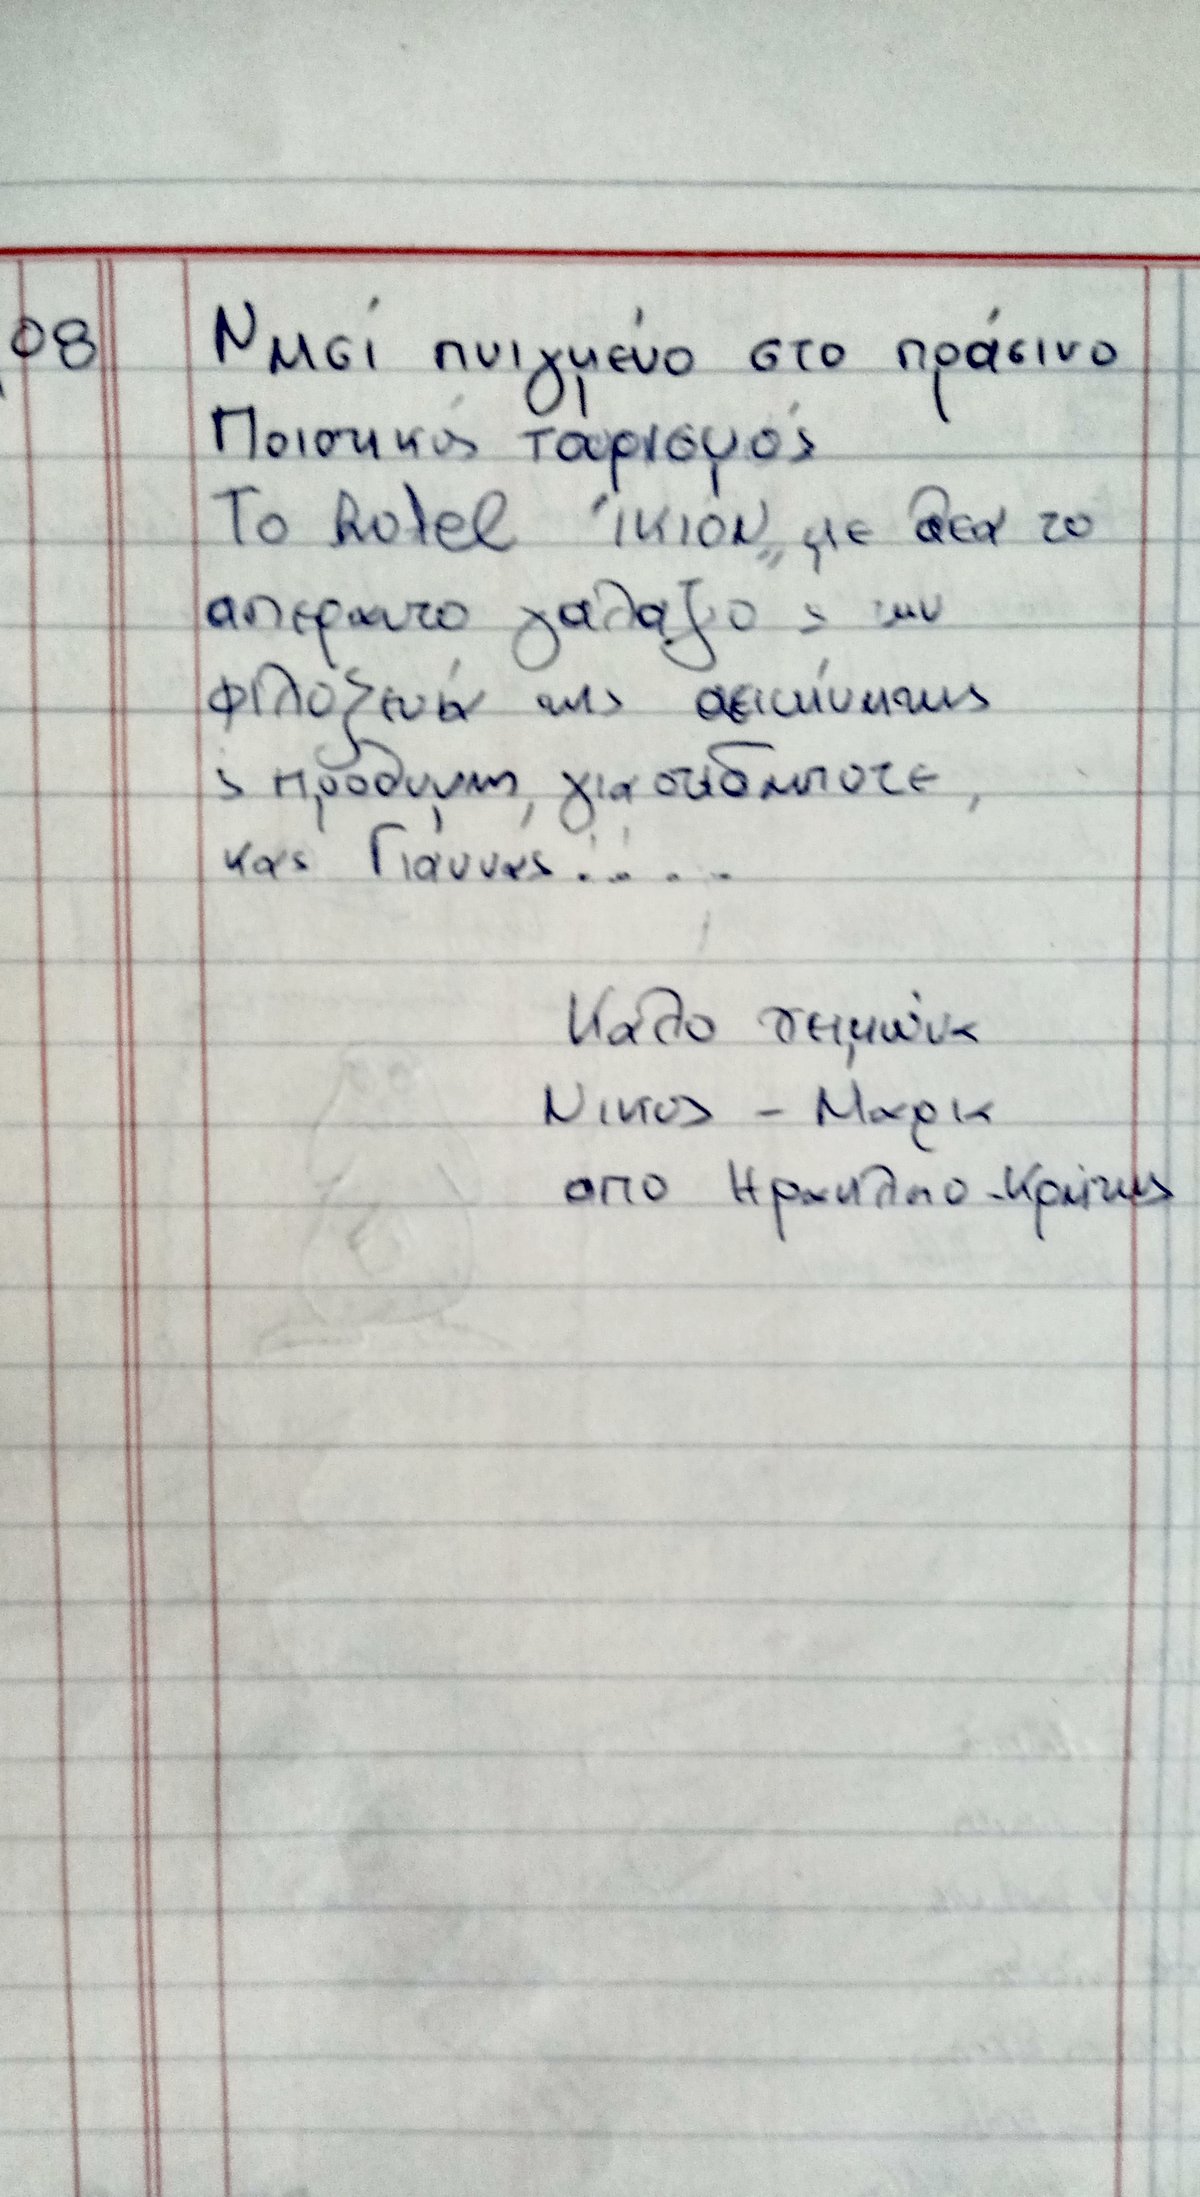 08
Νησί πνιγμένο στο πράσινο
Ποιοτικός τουρισμός
Το hotel "ΙΚΙΟΝ" με θέα το
απέραντο γαλάζιο & την
φιλοξενία της αεικίνητης
& πρόθυμη, για οτιδήποτε,
κας Γιάννας....
Καλο χειμώνα
Νικος - Μαρια
απο Ηρακλειο - Κρήτης